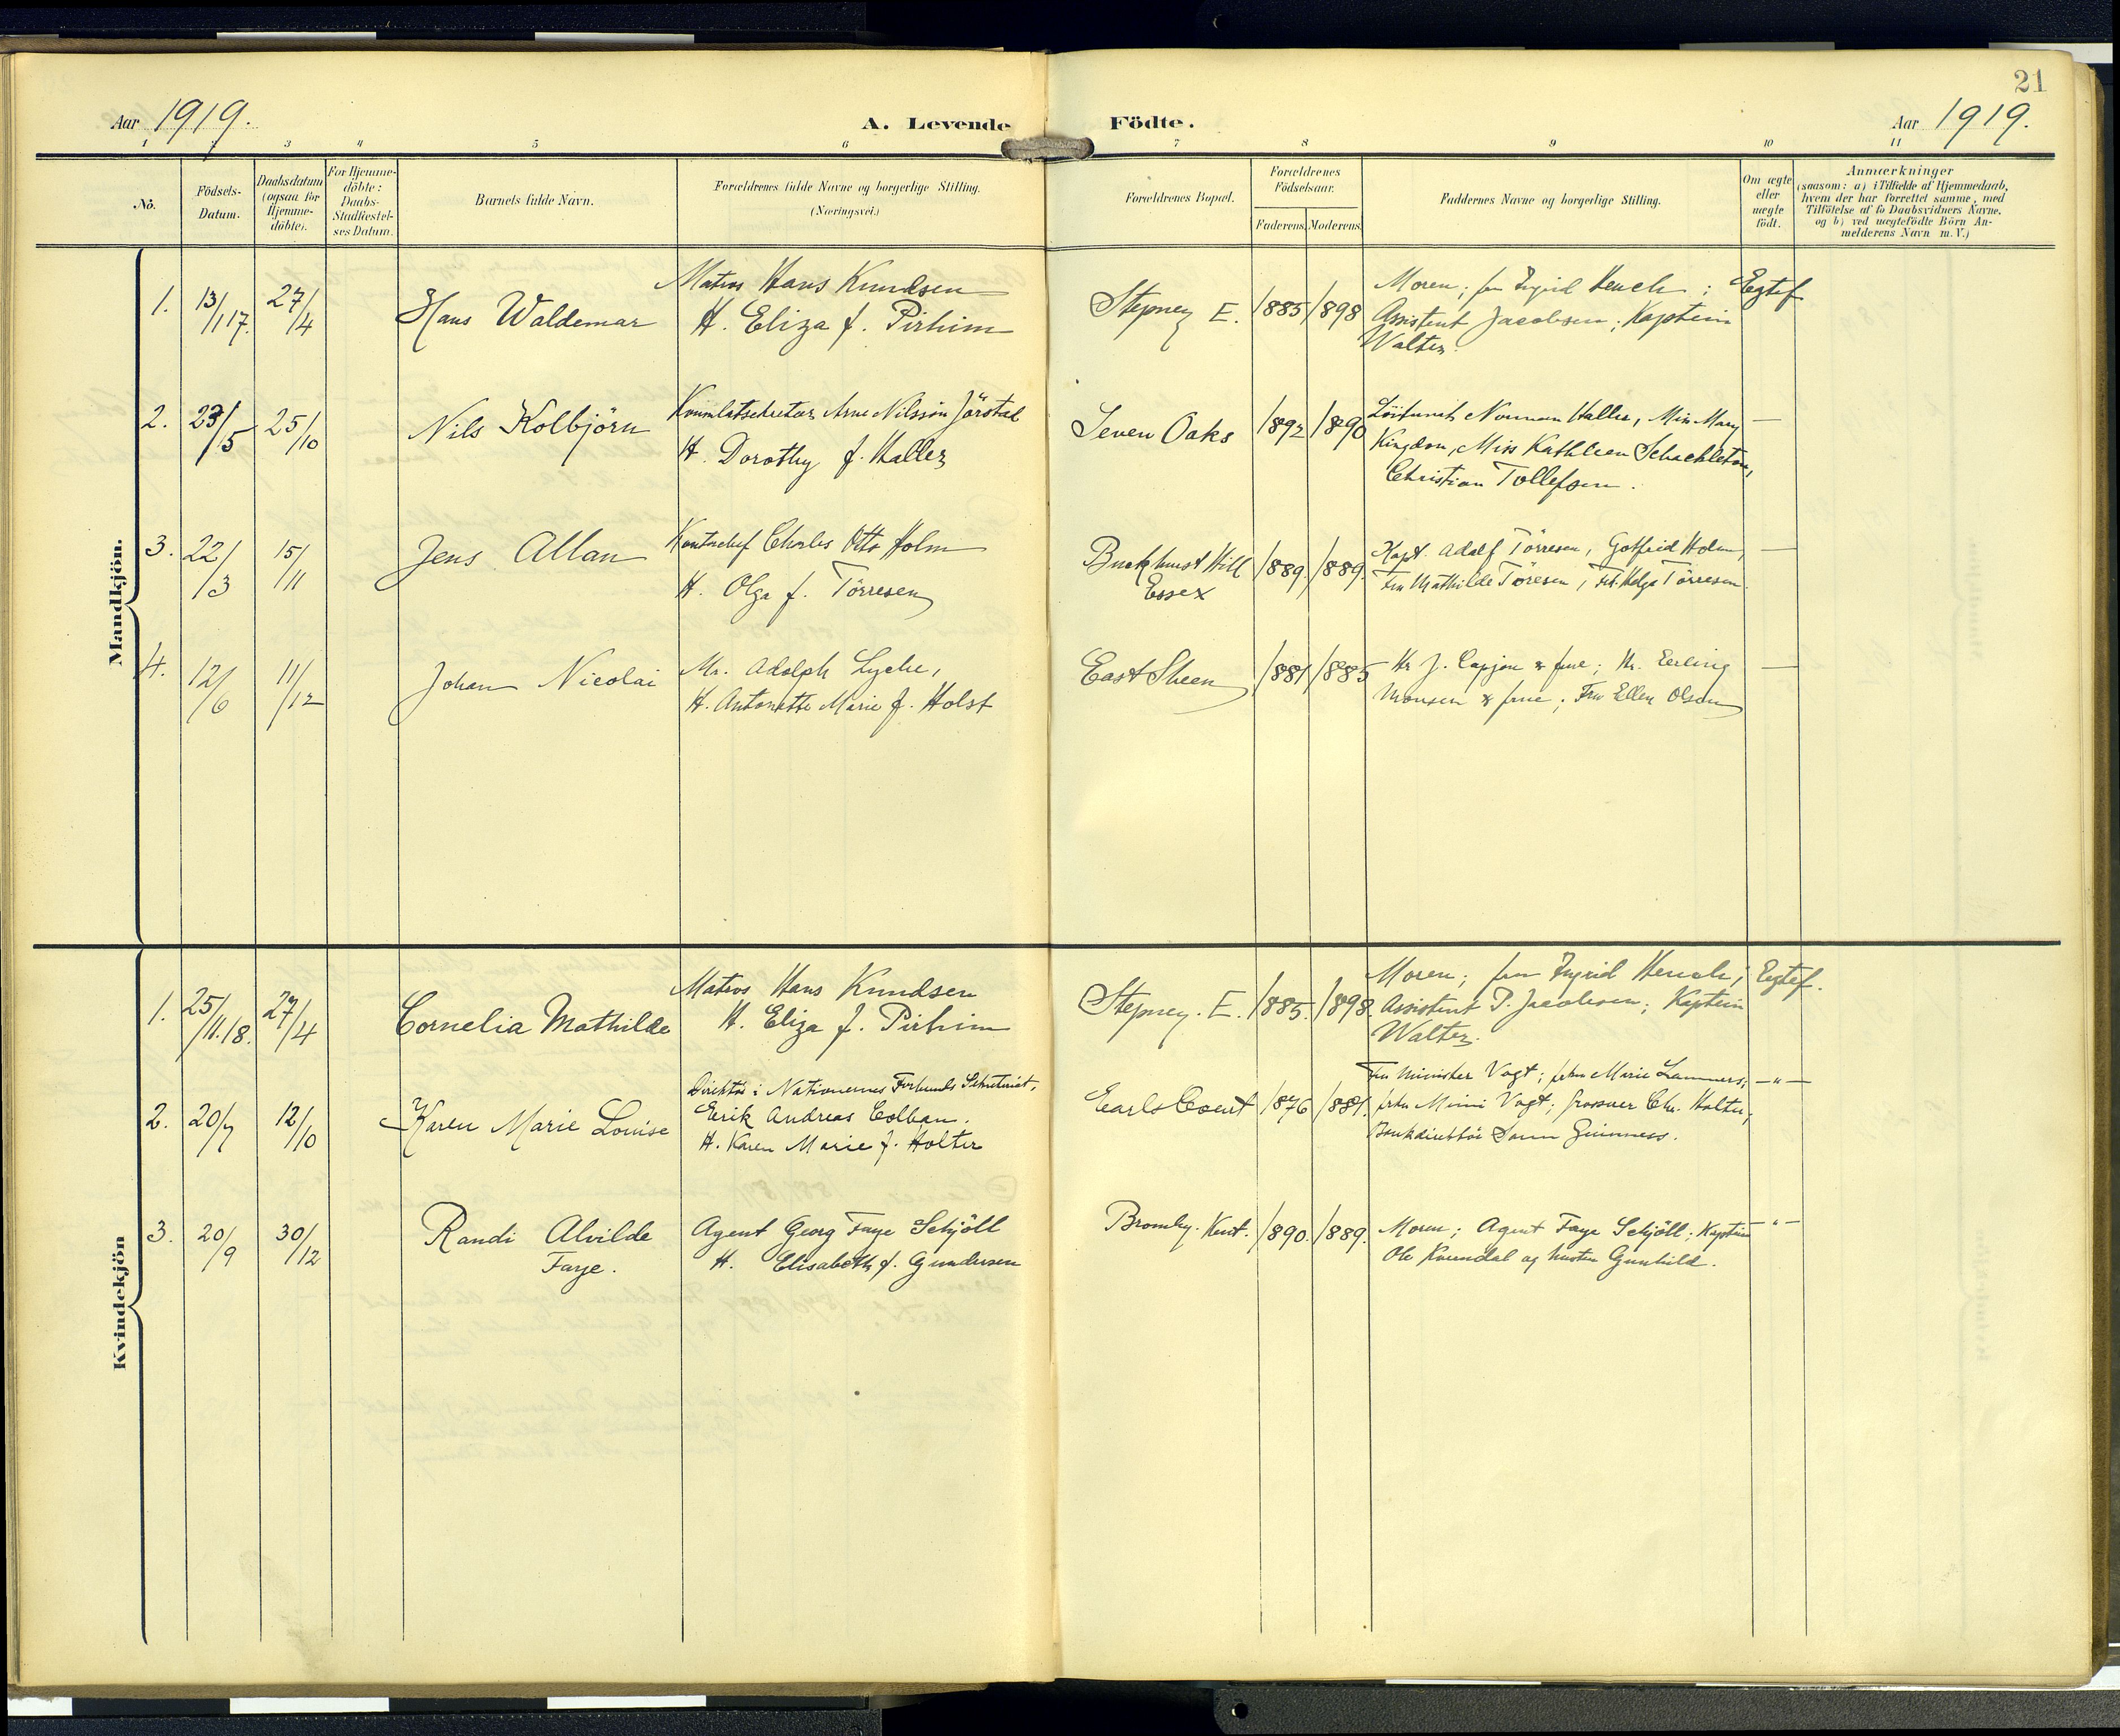 21
Aar 1919. A. Levende Födte. Aar 1919.
1 2 3 4 5 6 7 8 9 10 11
No.
Födsels-
Datum.
Daabsdatum
(ogsaa for
Hjemme-
döbte).
For Hjemme-
döbte:
Daabs-
Stadfæstel-
ses Datum.
Barnets fulde Navn.
Forældrenes fulde Navne og borgerlige Stilling.
(Næringsvei.)
Forældrenes Bopæl.
Forældrenes
Födselsaar.
Faderens. Moderens.
Faddernes Navne og borgerlige Stilling.
Om ægte
eller
uægte
födt.
Anmærkninger
(saasom: a) i Tilfælde af Hjemmedaab,
hvem der har forrettet samme, med
Tilföielse af to Daabsvidners Navne,
og b) ved uægtefödte Börn An-
melderens Navn m. V.)
Mandkjön.
1. 13/1 17. 27/4 Hans Waldemar
Matros Hans Knudsen
H. Eliza f. Pirhim
Stepney E. 1885 1898
Moren; fru Ingrid Hench;
Assistent Jacobsen; Kaptein
Walter.
Egtef
2. 23/5 25/10 Nils Kolbjörn
Arne Nilsson Jörstad
H. Dorothy f. Haller
Seven Oaks 1892 1890
Löitnant Norman Haller, Miss Mary
Kingdon, Miss Kathleen Schackleton,
Christian Tollefsen.
—
3. 22/3 15/11 Jens Allan
Kontorchef Charles Otto Holm
H. Olga f. Törresen
Buckhurst Hill
Essex
1889. 1889.
Kapt. Adolf Törresen, Gotfried Holm,
Fru Mathilde Töresen, Frk. Helga Törresen
—
4. 12/6 11/12 Johan Nicolai
Mr. Adolph Lyche,
H. Antonette Marie f. Holst
East Sheen 1881 1885
Hr J. Capjon & frue; Hr. Erling
Monsen & frue; Fru Ellen Olsen
—
Kvindekjön
1. 25/11.18. 27/4 Cornelia Mathilde
Matros Hans Knudsen
H. Eliza f. Pirhim
Stepney. E. 1885. 1898.
Moren; fru Ingrid Hench;
Assistent P. Jacobsen; Kaptein
Walter.
Egtef.
2. 20/7 12/10 Karen Marie Louise
Direktör i Nationernes Forbunds Sekretariat,
Erik Andreas Colban.
H. Karen Marie f. Holter
Earls Court 1876 1881.
Fru Minister Vogt; frkn Marie Lammers;
frkn Mimi Vogt; grosserer Chr. Holter;
Bankdirektör Guinness.
—"—
3. 20/9 30/12 Randi Alvilde
Faye.
Agent Georg Faye Schjöll
H. Elisabeth f. Gundersen
Bromley. Kent. 1890. 1889.
Moren; Agent Faye Schjöll; Kaptein
Ole Kvendal og hustru Gunhild.
"—